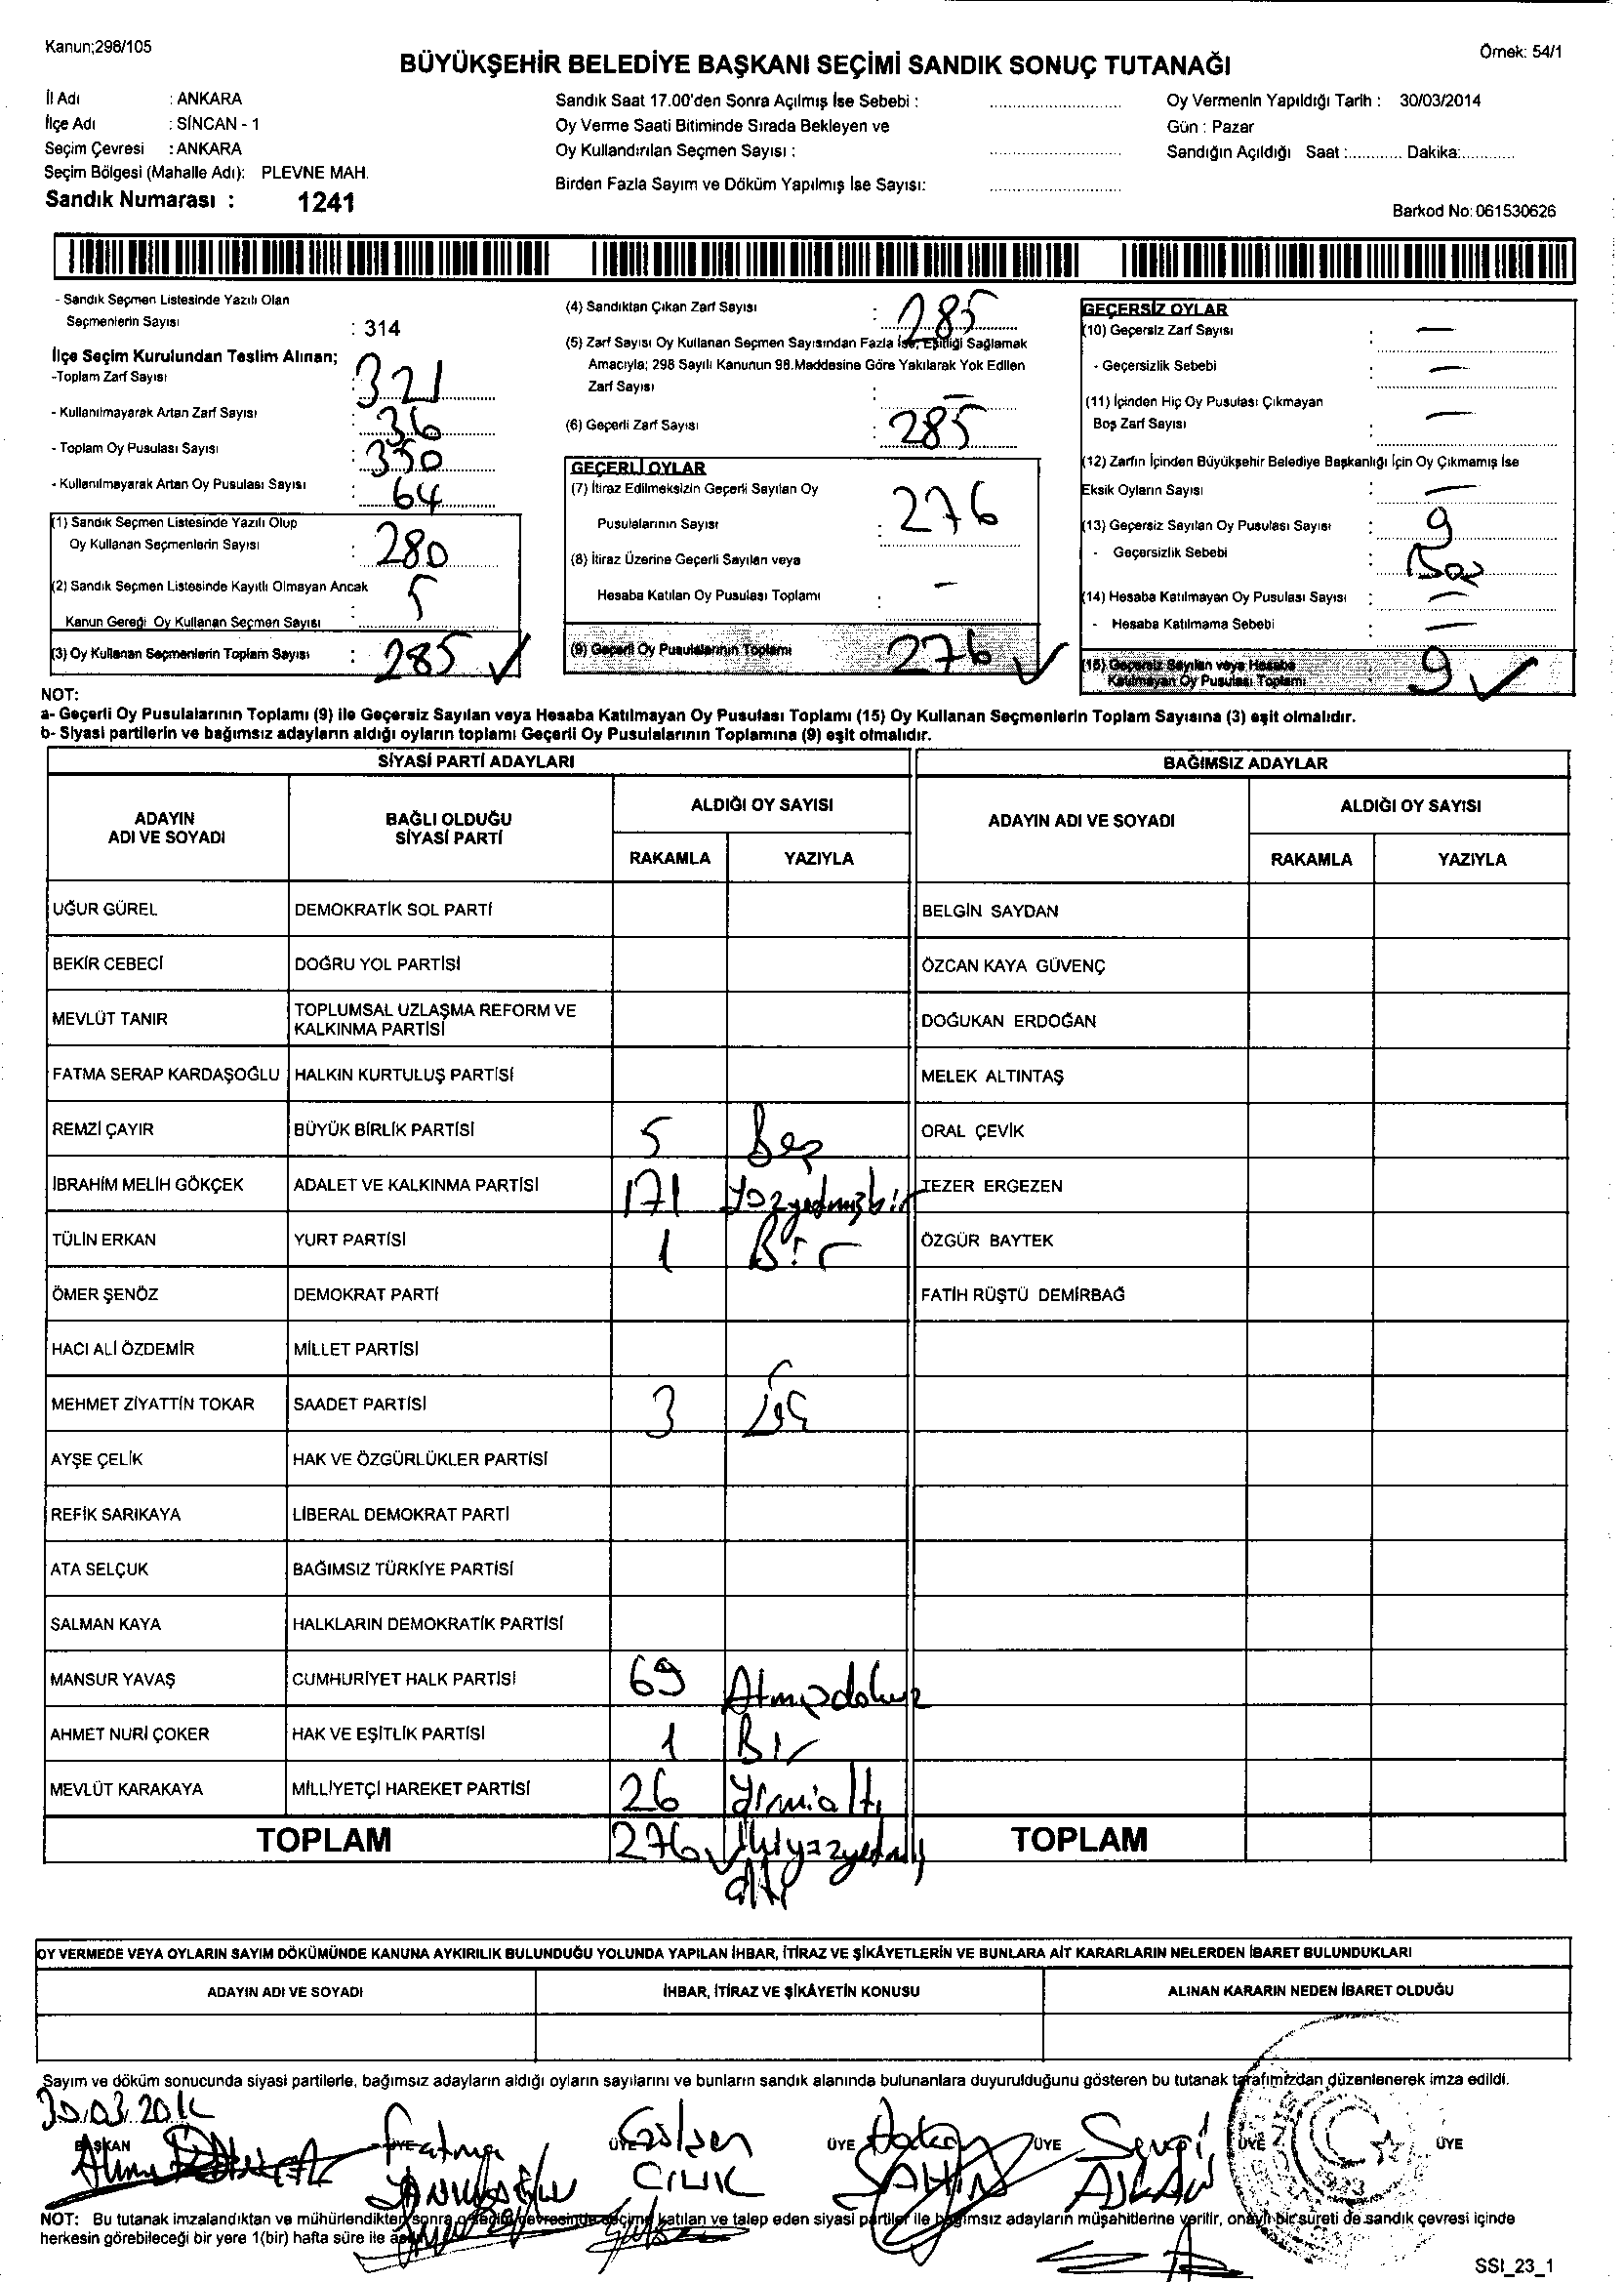 Kanun;298/105
Örnek: 54/1
BÜYÜKŞEHİR BELEDİYE BAŞKANI SEÇİMİ SANDIK SONUÇ TUTANAĞI
İl Adı : ANKARA
İlçe Adı : SİNCAN - 1
Seçim Çevresi : ANKARA
Seçim Bölgesi (Mahalle Adı): PLEVNE MAH.
Sandık Numarası : 1241
Sandık Saat 17.00'den Sonra Açılmış İse Sebebi :
Oy Verme Saati Bitiminde Sırada Bekleyen ve
Oy Kullandırılan Seçmen Sayısı :
Birden Fazla Sayım ve Döküm Yapılmış İse Sayısı:
Oy Vermenin Yapıldığı Tarih : 30/03/2014
Gün : Pazar
Sandığın Açıldığı Saat :............ Dakika:............
Barkod No: 061530626
- Sandık Seçmen Listesinde Yazılı Olan
Seçmenlerin Sayısı : 314
İlçe Seçim Kurulundan Teslim Alınan;
-Toplam Zarf Sayısı : 321
- Kullanılmayarak Artan Zarf Sayısı : 36
- Toplam Oy Pusulası Sayısı : 350
- Kullanılmayarak Artan Oy Pusulası Sayısı : 64
(1) Sandık Seçmen Listesinde Yazılı Olup
Oy Kullanan Seçmenlerin Sayısı : 280
(2) Sandık Seçmen Listesinde Kayıtlı Olmayan Ancak
Kanun Gereği Oy Kullanan Seçmen Sayısı : 5
(3) Oy Kullanan Seçmenlerin Toplam Sayısı : 285 ✓
(4) Sandıktan Çıkan Zarf Sayısı : 285
(5) Zarf Sayısı Oy Kullanan Seçmen Sayısından Fazla İse, Eşitliği Sağlamak
Amacıyla; 298 Sayılı Kanunun 98.Maddesine Göre Yakılarak Yok Edilen
Zarf Sayısı : —
(6) Geçerli Zarf Sayısı : 285
GEÇERLİ OYLAR
(7) İtiraz Edilmeksizin Geçerli Sayılan Oy
Pusulalarının Sayısı : 276
(8) İtiraz Üzerine Geçerli Sayılan veya
Hesaba Katılan Oy Pusulası Toplamı : —
(9) Geçerli Oy Pusulalarının Toplamı 276 ✓
GEÇERSİZ OYLAR
(10) Geçersiz Zarf Sayısı : —
- Geçersizlik Sebebi : —
(11) İçinden Hiç Oy Pusulası Çıkmayan
Boş Zarf Sayısı : —
(12) Zarfın İçinden Büyükşehir Belediye Başkanlığı İçin Oy Çıkmamış İse
Eksik Oyların Sayısı : —
(13) Geçersiz Sayılan Oy Pusulası Sayısı : 9
- Geçersizlik Sebebi :
(14) Hesaba Katılmayan Oy Pusulası Sayısı : —
- Hesaba Katılmama Sebebi : —
(15) Geçersiz Sayılan veya Hesaba
Katılmayan Oy Pusulası Toplamı : 9 ✓
NOT:
a- Geçerli Oy Pusulalarının Toplamı (9) ile Geçersiz Sayılan veya Hesaba Katılmayan Oy Pusulası Toplamı (15) Oy Kullanan Seçmenlerin Toplam Sayısına (3) eşit olmalıdır.
b- Siyasi partilerin ve bağımsız adayların aldığı oyların toplamı Geçerli Oy Pusulalarının Toplamına (9) eşit olmalıdır.
SİYASİ PARTİ ADAYLARI BAĞIMSIZ ADAYLAR
ADAYIN
ADI VE SOYADI
BAĞLI OLDUĞU
SİYASİ PARTİ
ALDIĞI OY SAYISI
RAKAMLA YAZIYLA
ADAYIN ADI VE SOYADI
ALDIĞI OY SAYISI
RAKAMLA YAZIYLA
UĞUR GÜREL DEMOKRATİK SOL PARTİ BELGİN SAYDAN
BEKİR CEBECİ DOĞRU YOL PARTİSİ ÖZCAN KAYA GÜVENÇ
MEVLÜT TANIR TOPLUMSAL UZLAŞMA REFORM VE
KALKINMA PARTİSİ DOĞUKAN ERDOĞAN
FATMA SERAP KARDAŞOĞLU HALKIN KURTULUŞ PARTİSİ MELEK ALTINTAŞ
REMZİ ÇAYIR BÜYÜK BİRLİK PARTİSİ 5 Beş ORAL ÇEVİK
İBRAHİM MELİH GÖKÇEK ADALET VE KALKINMA PARTİSİ 171 Yüzyetmişbir TEZER ERGEZEN
TÜLİN ERKAN YURT PARTİSİ 1 Bir ÖZGÜR BAYTEK
ÖMER ŞENÖZ DEMOKRAT PARTİ FATİH RÜŞTÜ DEMİRBAĞ
HACI ALİ ÖZDEMİR MİLLET PARTİSİ
MEHMET ZİYATTİN TOKAR SAADET PARTİSİ 3 Üç
AYŞE ÇELİK HAK VE ÖZGÜRLÜKLER PARTİSİ
REFİK SARIKAYA LİBERAL DEMOKRAT PARTİ
ATA SELÇUK BAĞIMSIZ TÜRKİYE PARTİSİ
SALMAN KAYA HALKLARIN DEMOKRATİK PARTİSİ
MANSUR YAVAŞ CUMHURİYET HALK PARTİSİ 69 Atmışdokuz
AHMET NURİ ÇOKER HAK VE EŞİTLİK PARTİSİ 1 Bir
MEVLÜT KARAKAYA MİLLİYETÇİ HAREKET PARTİSİ 26 Yirmialtı
TOPLAM 276 ✓ İkiyüzyetmiş TOPLAM
altı
OY VERMEDE VEYA OYLARIN SAYIM DÖKÜMÜNDE KANUNA AYKIRILIK BULUNDUĞU YOLUNDA YAPILAN İHBAR, İTİRAZ VE ŞİKÂYETLERİN VE BUNLARA AİT KARARLARIN NELERDEN İBARET BULUNDUKLARI
ADAYIN ADI VE SOYADI İHBAR, İTİRAZ VE ŞİKÂYETİN KONUSU ALINAN KARARIN NEDEN İBARET OLDUĞU
Sayım ve döküm sonucunda siyasi partilerle, bağımsız adayların aldığı oyların sayılarını ve bunların sandık alanında bulunanlara duyurulduğunu gösteren bu tutanak tarafımızdan düzenlenerek imza edildi.
30.03.2014
BAŞKAN ÜYE ÜYE ÜYE ÜYE ÜYE ÜYE
Fatma Gülşen Hakan Sevgi
CILIK ŞAHİN ASLAN
NOT: Bu tutanak imzalandıktan ve mühürlendikten sonra o seçim çevresinde seçime katılan ve talep eden siyasi partiler ile bağımsız adayların müşahitlerine verilir, onaylı bir sureti de sandık çevresi içinde
herkesin görebileceği bir yere 1(bir) hafta süre ile asılır.
SSI_23_1